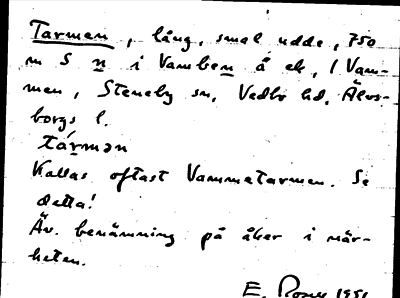 Tarmen, lång, smal udde, 750
m S n i Vamben å ek, i Vam-
men, Steneby sn, Vedbo hd, Älvs-
borgs l.
tármən
Kallas oftast Vammetarmen. Se
detta!
Äv. benämning på åker i när-
heten.
E. 1951